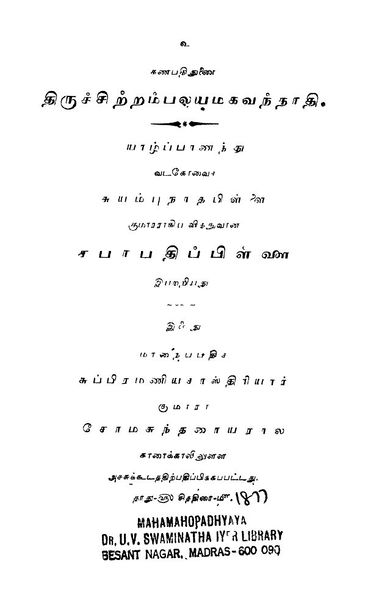 உ
கணபதிதுணை
திருச்சிற்றம்பலயமகவந்தாதி.
யாழ்ப்பாணத்து
வடகோவைச்
சுயம்புநாதபிள்ளை
குமாரராகிய வித்துவான்
சபாபதிப்பிள்ளை
இயற்றியது
இஃது
சுப்பிரமணியசாஸ்திரியார்
குமாரர்
காரைக்காலிலுள்ள
அச்சுக்கூடத்திற்பதிப்பிக்கப்பட்டது.
சித்திரை 1877
MAHAMAHOPADHYAYA
DR. U.V. SWAMINATHA IYER LIBRARY
BESANT NAGAR, MADRAS-600 090